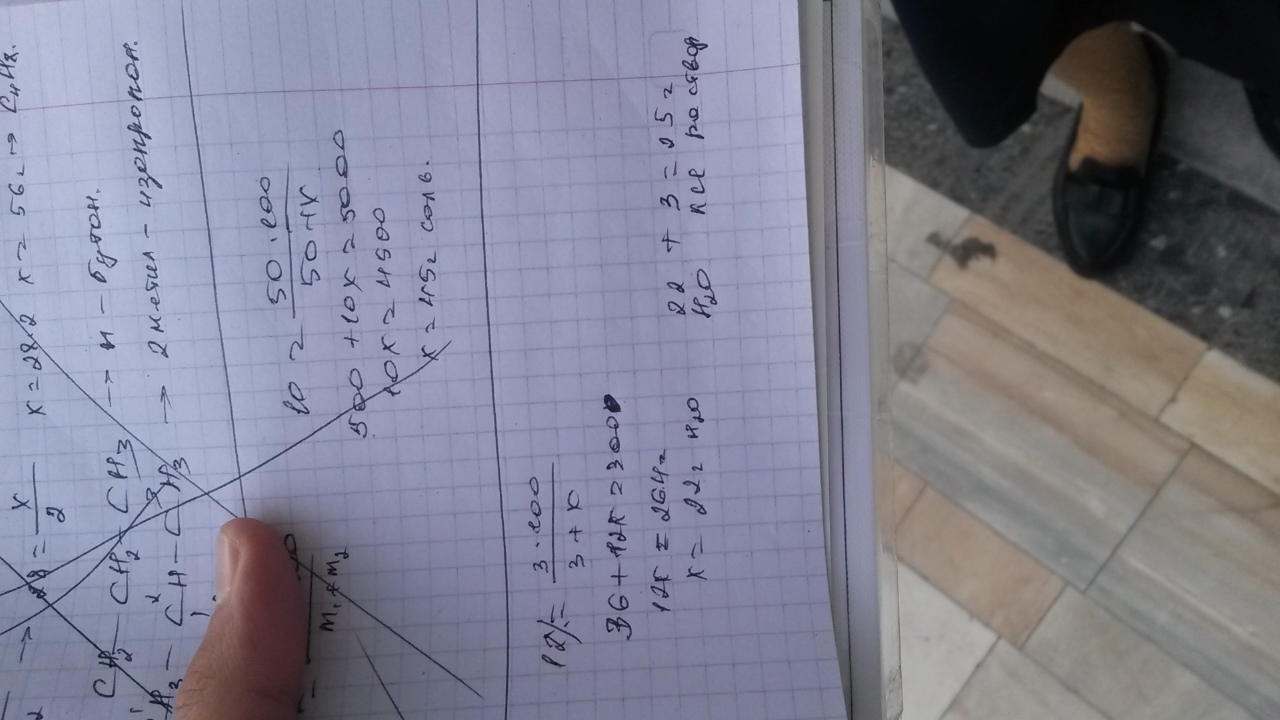 28 = x/2 x = 28·2 x = 56г → C4H8.
CH2 — CH2 — CH3 → н – бутон.
H3 — CH — CH3 → 2 метил – изопропон.
m1 + m2
10 = 50·100/50+x
500 + 10x = 5000
10x = 4500
x = 45г соли.
12% = 3·100/3+x
36 + 12x = 300
12x = 264г
x = 22г H2O
22 + 3 = 25г
H2O все раствор